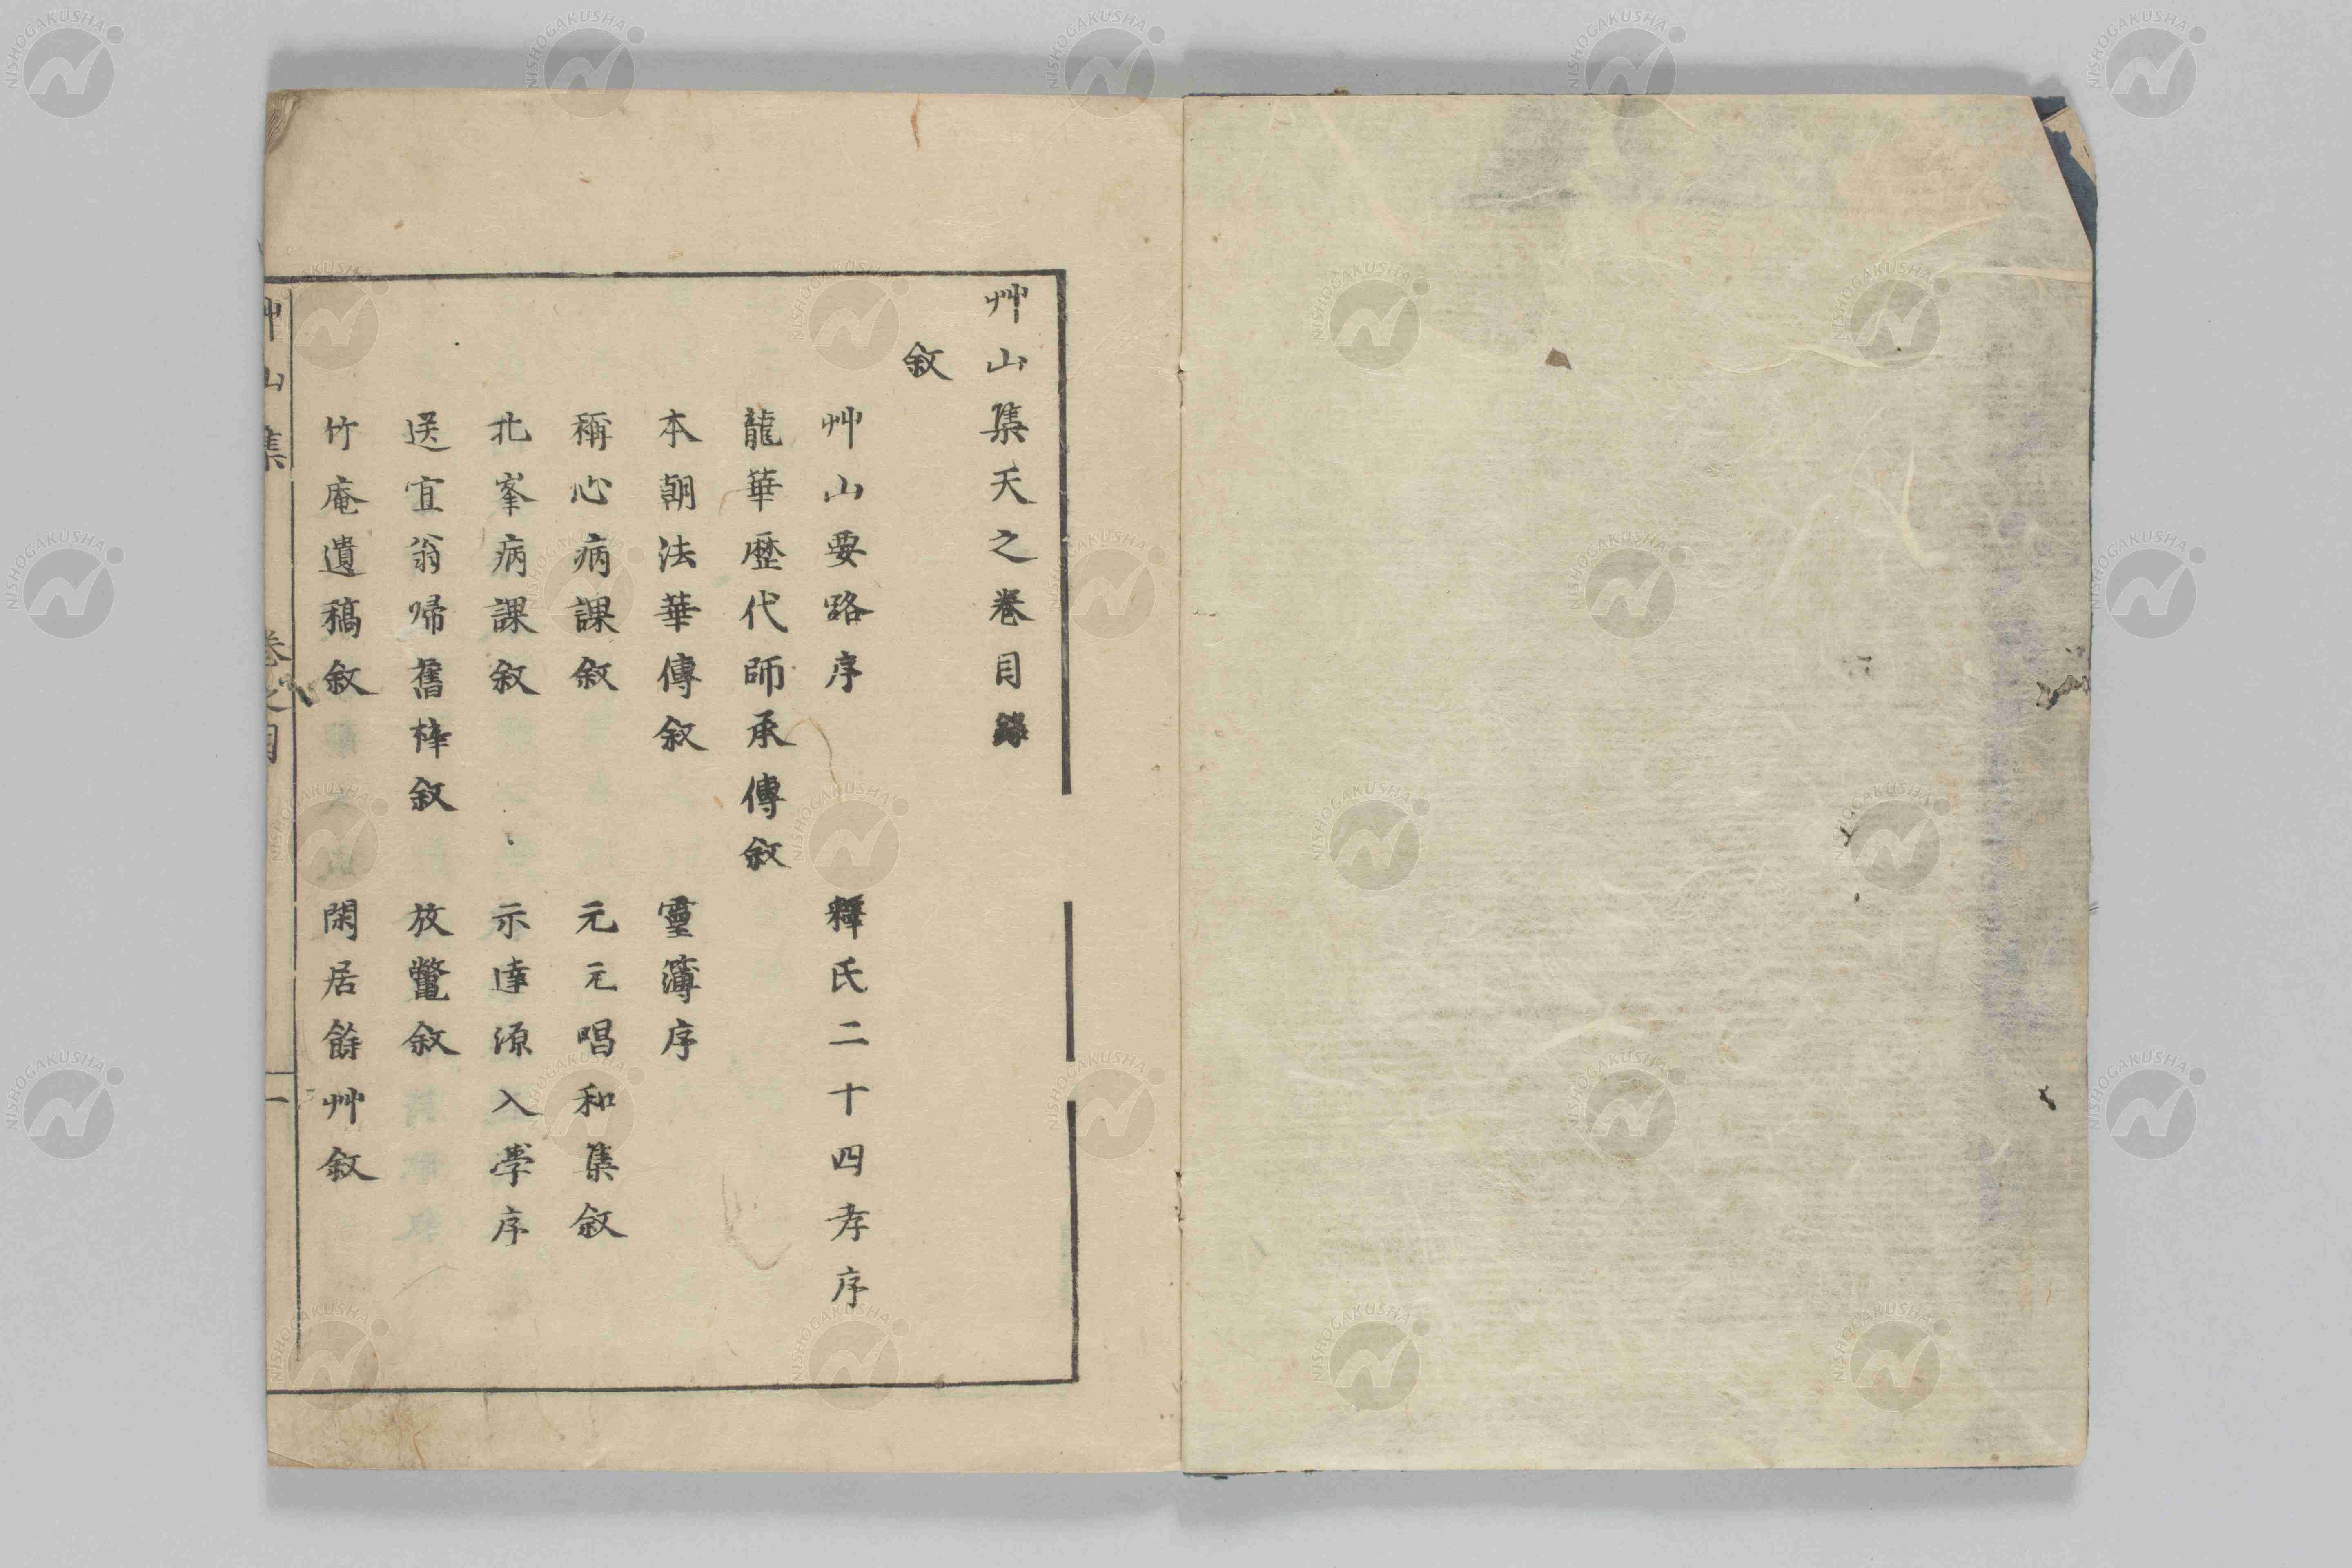 艸山集天之巻目録
敘
艸山要路序　釋氏二十四孝序
龍華歴代師承傳敘
本朝法華傳敘　靈簿序
稱心病課敘　元元唱和集敘
北峯病課敘　示達源入學序
送宜翁帰舊梓敘　放鼈敘
竹庵遺稿敘　閑居餘艸敘
艸山集　巻之目　一
NISHOGAKUSHA